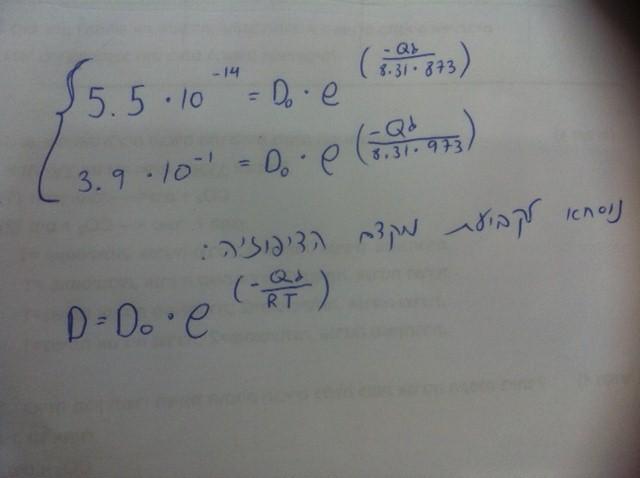 5.5 · 10^-14 = D₀ · e^(-Qd / 8.31 · 873)
3.9 · 10^-1 = D₀ · e^(-Qd / 8.31 · 973)
נוסחא לקביעת מקדם הדיפוזיה:
D = D₀ · e^(-Qd / RT)